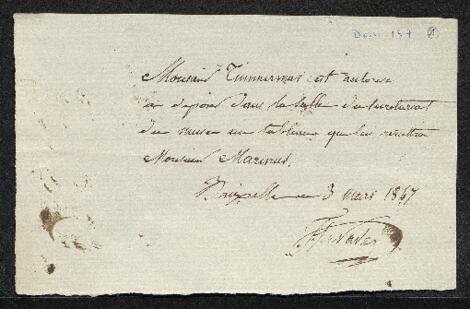 Dos. 157
Monsieur Timmermans est autorisé
à déposer dans la salle du secrétariat
du musée un tableau que lui remettra
Monsieur Marinus.
Bruxelles ce 3 mars 1847